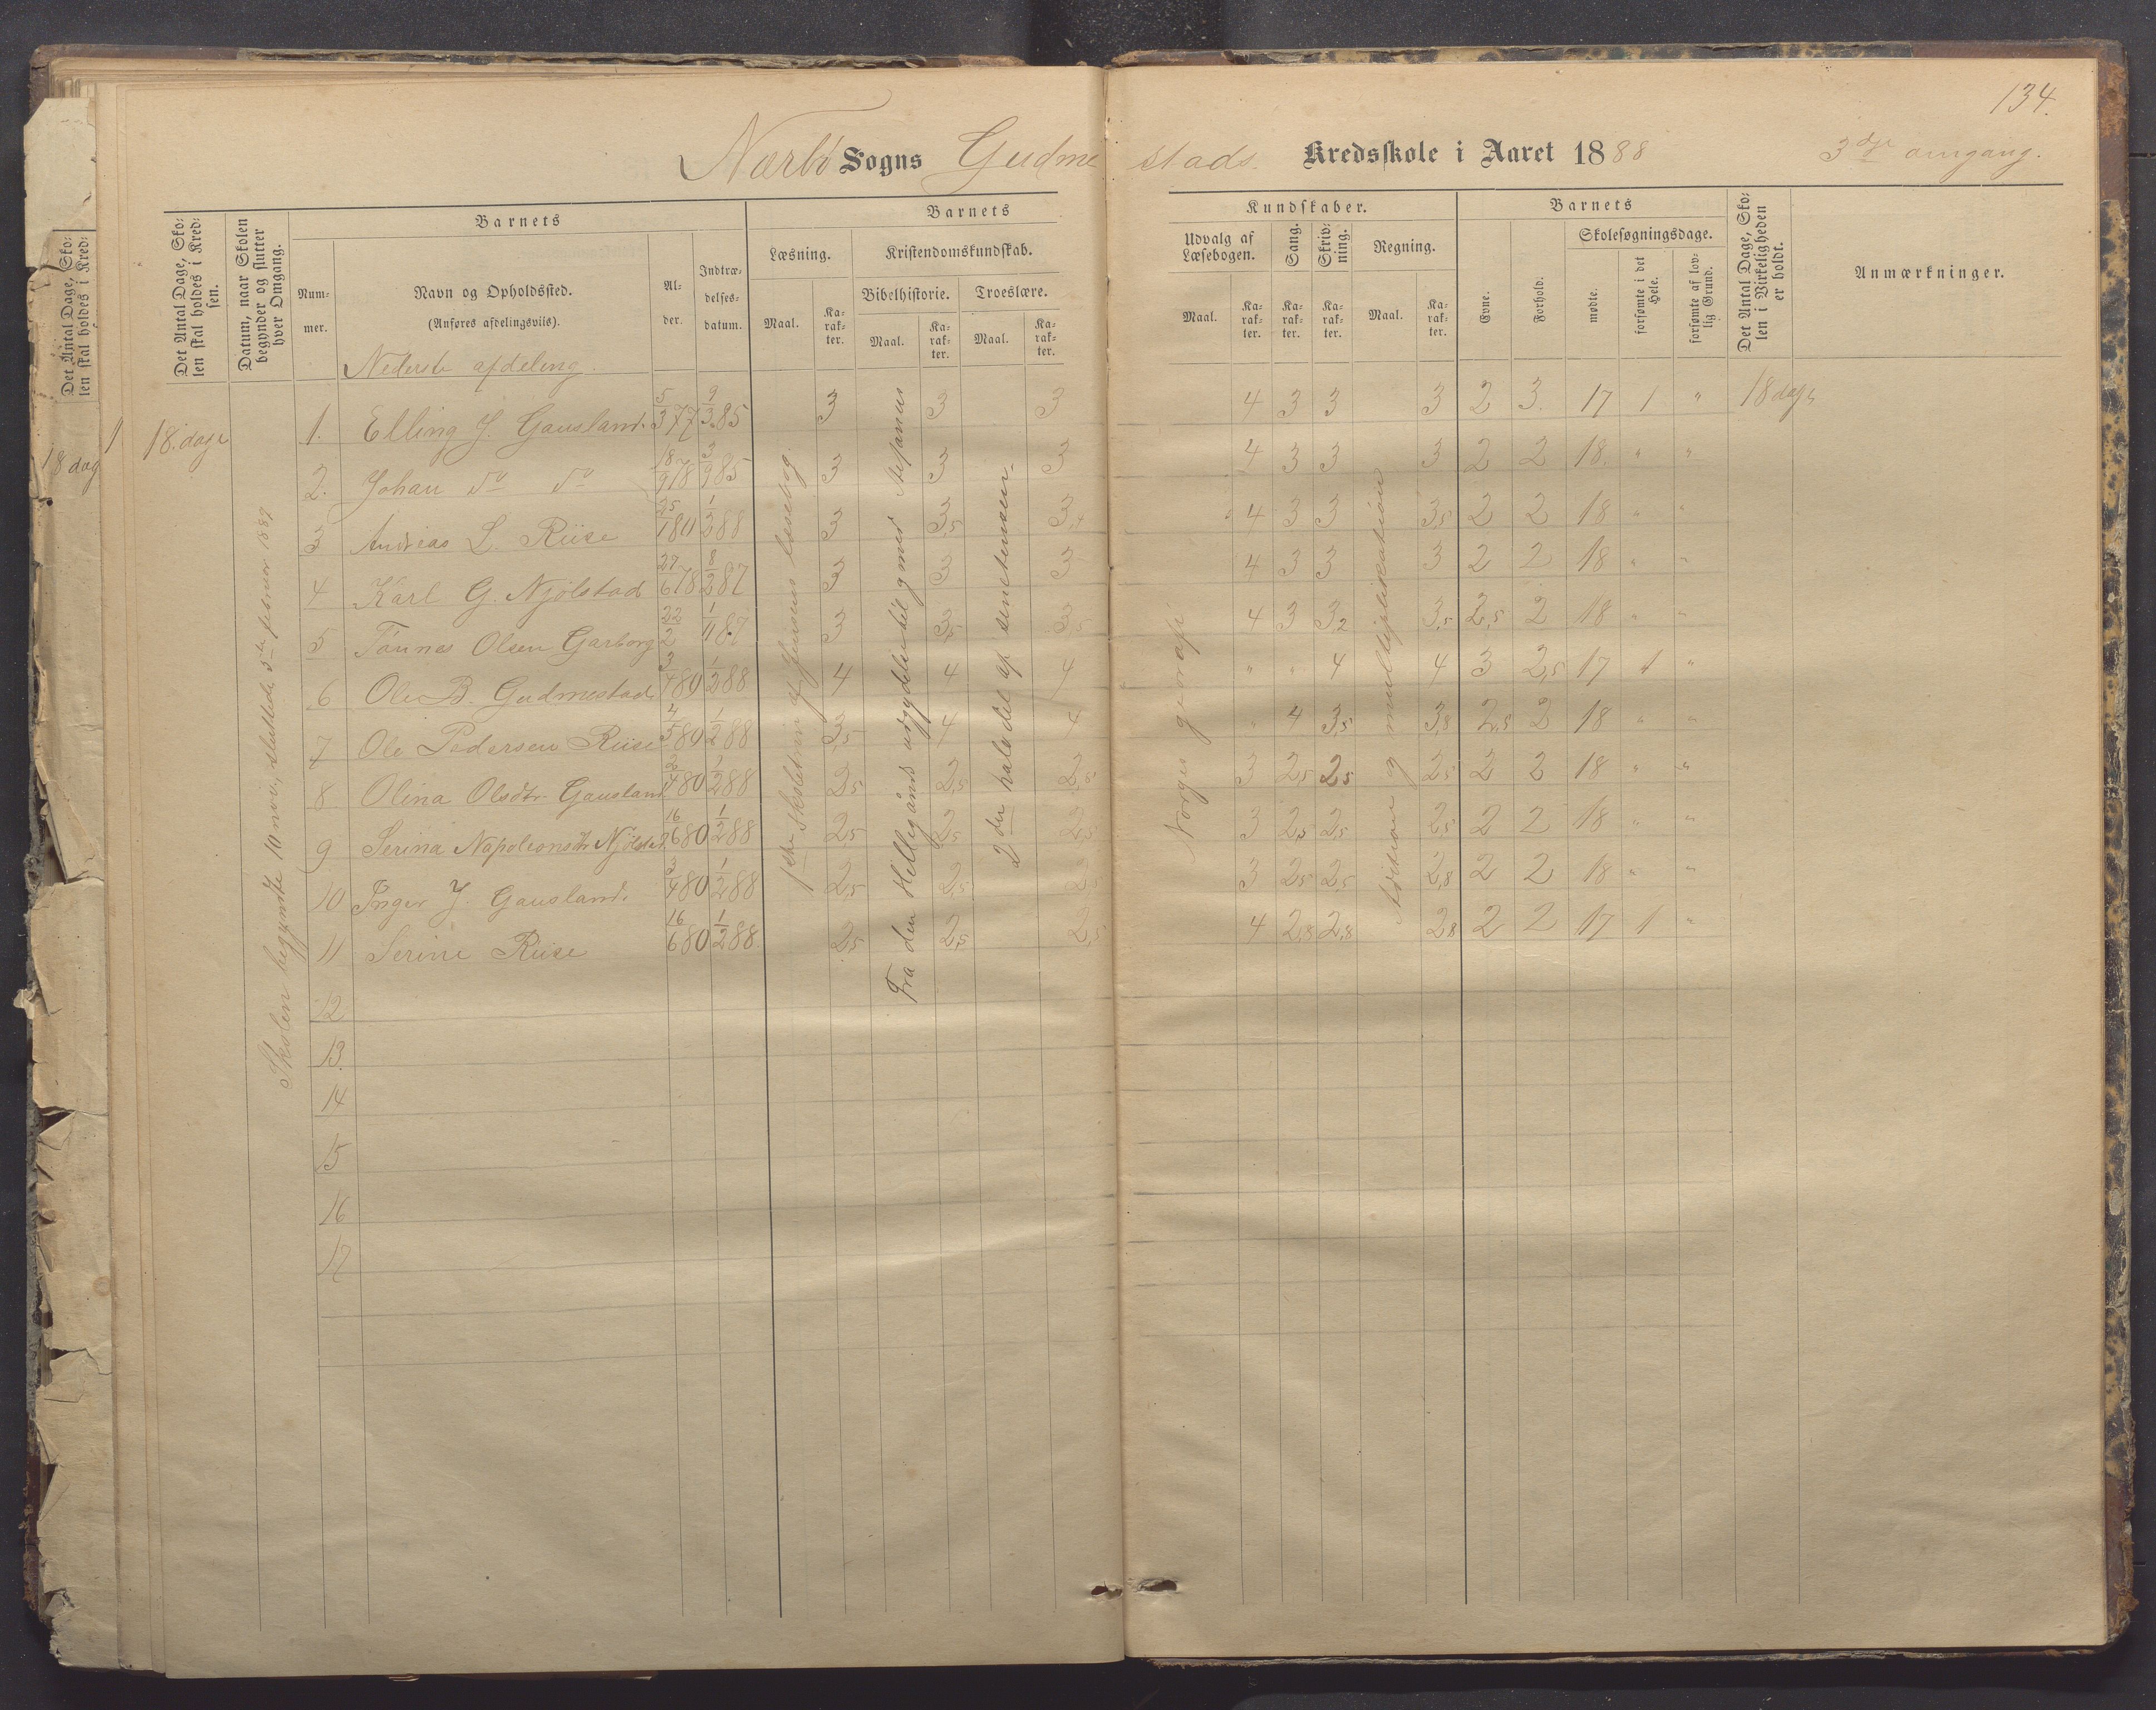 134.
Nærbö Sogns Gudmestads. Kredsskole i Aaret 1888 3dje omgang.
Det Antal Dage, Skolen skal holdes i Kredsen.
Datum, naar Skolen begynder og slutter hver Omgang.
Barnets
Nummer.
Navn og Opholdssted.
(Anføres afdelingsviis).
Alder.
Indtrædelsesdatum.
Barnets Kundskaber.
Læsning.
Maal.
Karakter.
Kristendomskundskab.
Bibelhistorie.
Maal.
Karakter.
Troeslære.
Maal.
Karakter.
Udvalg af Læsebogen.
Maal.
Karakter.
Sang.
Karakter.
Skrivning.
Karakter.
Regning.
Maal.
Karakter.
Barnets
Evne.
Forhold.
Skolesøgningsdage.
mødte.
forsømte i det Hele.
forsømte af lovlig Grund.
Det Antal Dage, Skolen i Virkeligheden er holdt.
Anmærkninger.
Nederste afdeling.
18. dage
Skolen begyndte 10 nov., sluttede 5te februar 1889
1ste skoletrin af Jensens læsebog.
Fra den Helligånds udgydelse til og med Stefanus
2den halvdel af sentensen
Norges geografi
Adition og multiplikation
1. Elling J. Gausland. 5/3 77 9/3 85 3 3 3 4 3 3 3 2 3. 17 1 " 18 dage
2. Johan do do 18/9 78 3/9 85 3 3 3 4 3 3 3 2 2 18. " "
3 Andreas L. Riise 25/1 80 1/3 88 3 3,5 3,4 4 3 3 3,5 2 2 18 " "
4 Karl G. Njölstad 27/6 78 8/2 87 3 3 3 4 3 3 3 2 2 18 " "
5 Tönnes Olsen Garborg 22/2 1/11 87 3 3,5 3,5 4 3 3,2 3,5 2,5 2 18 " "
6 Ole B. Gudmestad 3/4 80 1/2 88 4 4 4 " " 4 4 3 2,5 17 1 "
7 Ole Pedersen Riise 4/5 80 1/2 88 3,5 4 4 " 4 3,5 3,8 2,8 2 18 " "
8 Olina Olsdtr. Gausland 2/4 80 1/2 88 2,5 2,5 2,5 3 2,5 2,5 2,5 2 2 18 " "
9 Serina Napoleonsdtr Njölstad. 16/6 80 1/2 88 2,5 2,5 2,5 3 2,5 2,5 2,5 2 2 18 " "
10 Inger J. Gausland. 3/4 80 1/2 88 2,5 2,5 2,5 3 2,5 2,5 2,8 2 2 18 " "
11 Serine Riise 16/6 80 1/2 88. 2,5 2,5 2,5 4 2,8 2,8 2,8 2 2 17 1 "
12
13.
14
15
16
17
Det Antal Dage, Skolen skal holdes i Kred-
18 dag